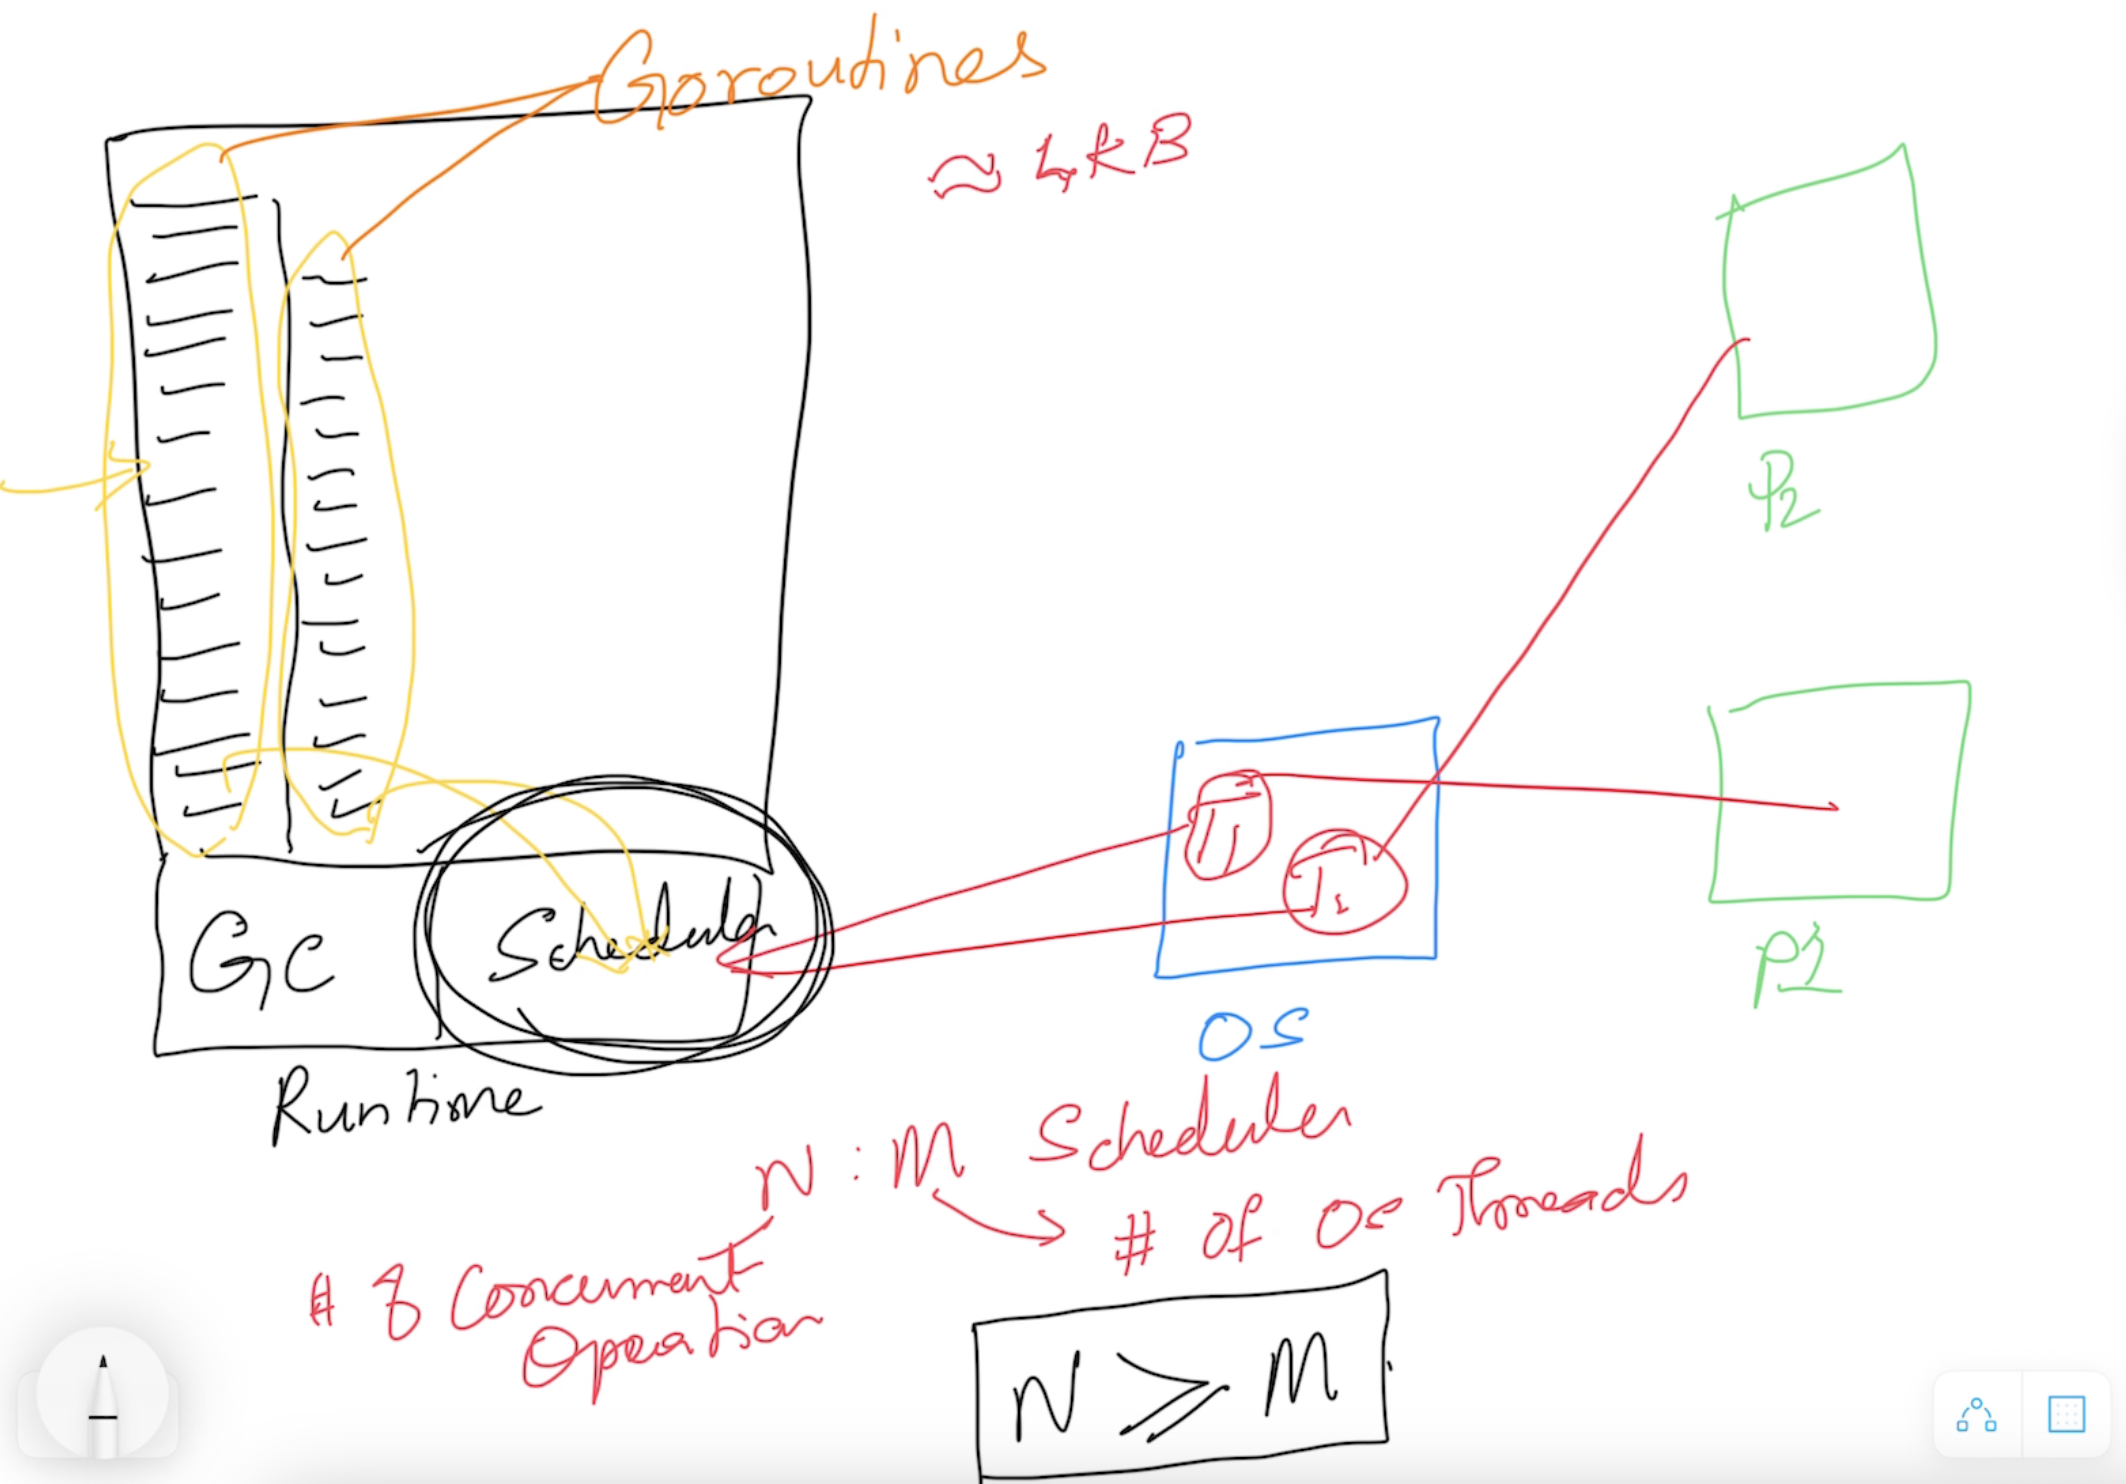 Goroutines
≈ 4kB
P2
T1
T2
GC
Scheduler
P1
OS
Runtime
N : M Scheduler
# of OS Threads
# of Concurrent
Operation
N ⩾ M